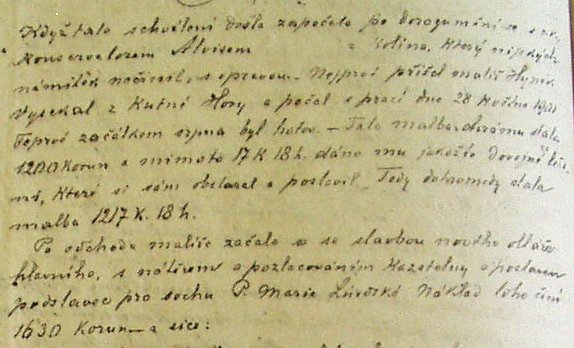 Když tato schválení došla započato po dorozumění se s p.
konservátorem Alvisem z Kolína, který nijakých
námitek nečinil, s opravou. Nejprvé přišel malíř Hynek
Vysekal z Kutné Hory a počal s prací dne 28 května 1901
Teprvé začátkem srpna byl hotov. – Tato malba chrámu stála
1200 korun a mimoto 17 K 18 h. dáno mu jakožto dovozné leše-
ní, které si sám obstaral a postavil. Tedy dohromady stála
malba 1217 K. 18 h.
Po odchodu malíře začalo se se stavbou nového oltáře
hlavního, s nátěrem a pozlacováním kazatelny a postaven
podstavec pro sochu P. Marie Lurdské Náklad toho činí
1630 Korun – a sice: